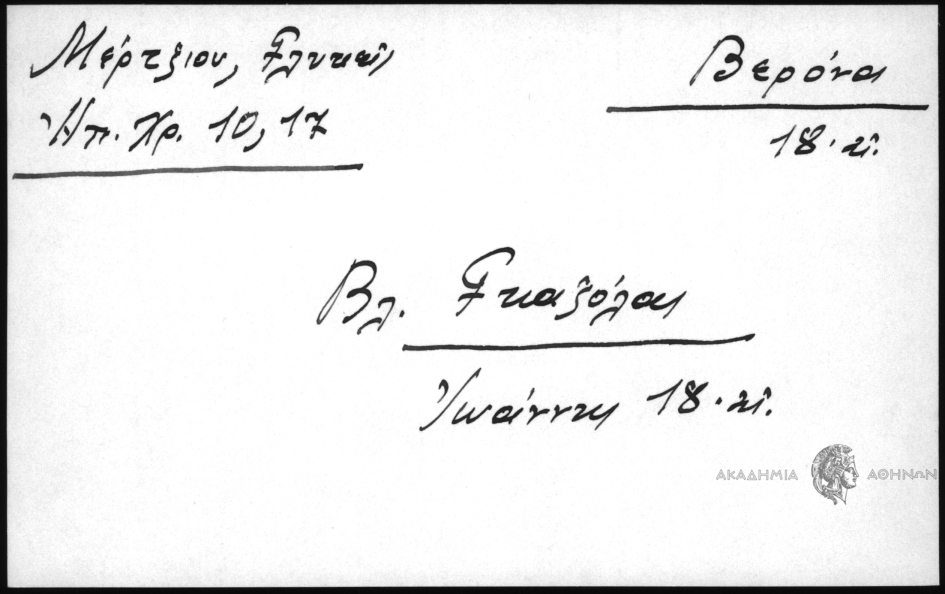 Μέρτζιου, Γλυκεῖς
Ἠπ. Χρ. 10, 17
Βερόνα
18. αἰ.
Βλ. Γκαζόλας
Ἰωάννης 18. αἰ.
ΑΚΑΔΗΜΙΑ ΑΘΗΝΩΝ